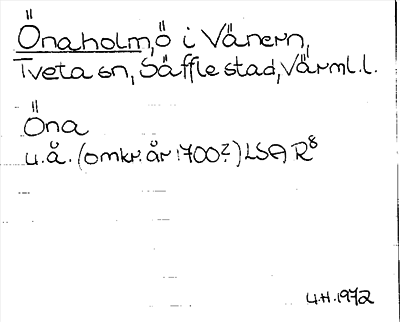 Önaholm, ö i Vänern,
Tveta sn, Säffle stad, Värml. l.
Öna
u.å. (omkr. år 1700?) LSA R8
U.H. 1972